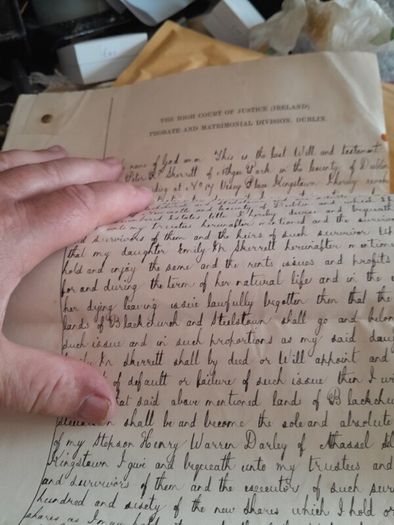 THE HIGH COURT OF JUSTICE (IRELAND)
PROBATE AND MATRIMONIAL DIVISION, DUBLIN.
name of God amen This is the last Will and testament
Sherrett of Park in the County of Dublin
at No 17 Kingstown hereby revoke
my trustees hereinafter mentioned and the survivor
and survivors of them and the heirs of such survivor
that my daughter Emily M Sherrett hereinafter mentioned
hold and enjoy the same and the rents issues and profits
for and during the term of her natural life and in the
her dying leaving issue lawfully begotten then that the
lands of Blackchurch and Steelstown shall go and belong
such issue and in such proportions as my said daug
Mr Sherrett shall by deed or Will appoint and
of default or failure of such issue then I
said above mentioned lands of Blackchu
shall be and become the sole and absolute
of my Stepson Henry Warren Darley of
Kingstown I give and bequeath unto my trustees and
and survivors of them and the executors of such surv
hundred and sixty of the new shares which I hold
shares as I may